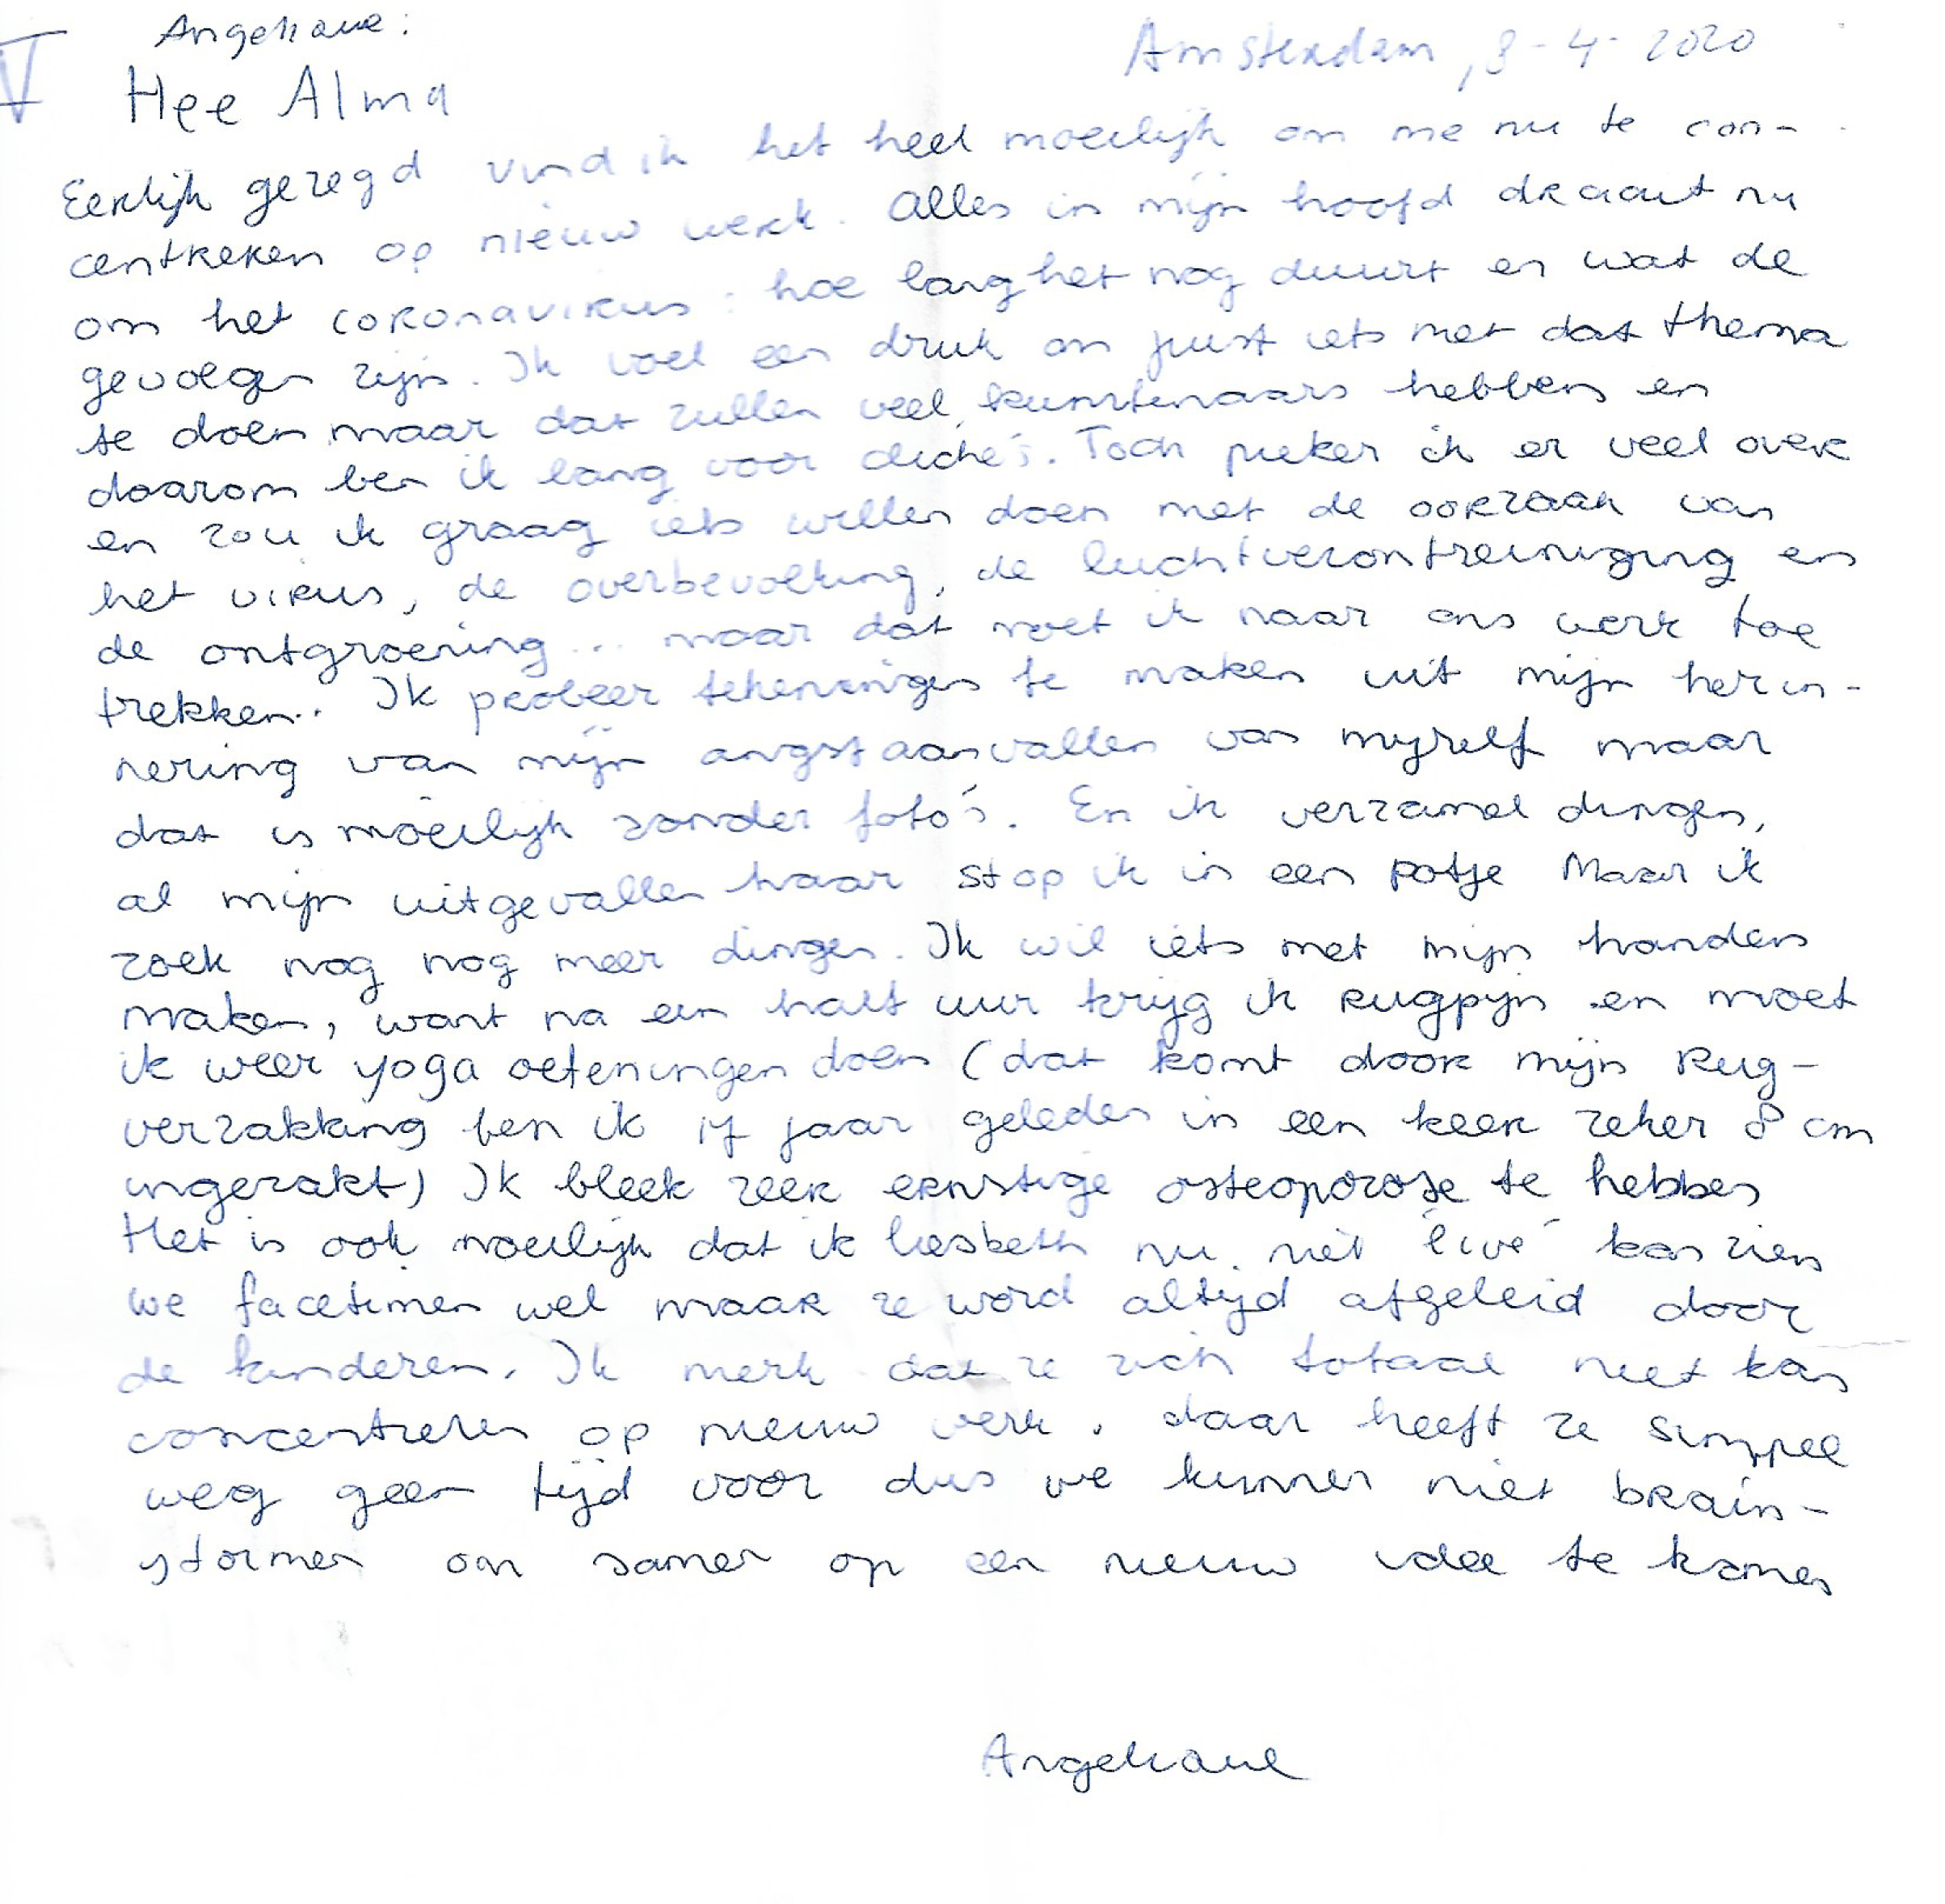 V
Angelique:
Amsterdam, 8-4-2020
Hee Alma
Eerlijk gezegd vind ik het heel moeilijk om me nu te con-
centreren op nieuw werk. Alles in mijn hoofd draait nu
om het coronavirus: hoe lang het nog duurt en wat de
gevolgen zijn. Ik voel een druk om juist iets met dat thema
te doen maar dat zullen veel kunstenaars hebben en
daarom ben ik bang voor cliché's. Toch pieker ik er veel over
en zou ik graag iets willen doen met de oorzaak van
het virus, de overbevolking, de luchtverontreiniging en
de ontgroening... maar dat moet ik naar ons werk toe
trekken.. Ik probeer tekeningen te maken uit mijn herin-
nering van mijn angstaanvallen van myself maar
dat is moeilijk zonder foto's. En ik verzamel dingen,
al mijn uitgevallen haar stop ik in een potje Maar ik
zoek nog nog meer dingen. Ik wil iets met mijn handen
maken, want na een half uur krijg ik rugpijn en moet
ik weer yoga oefeningen doen (dat komt door mijn Rug-
verzakking ben ik jaar geleden in een keer zeker 8 cm
ingezakt) Ik bleek zeer ernstige osteoporose te hebben
Het is ook moeilijk dat ik Liesbeth nu niet 'live' kan zien
we facetimen wel maar ze word altijd afgeleid door
de kinderen. Ik merk dat ze zich totaal niet kan
concentreren op nieuw werk, daar heeft ze simpel
weg geen tijd voor dus we kunnen niet brain-
stormen om samen op een nieuw idee te komen
Angelique